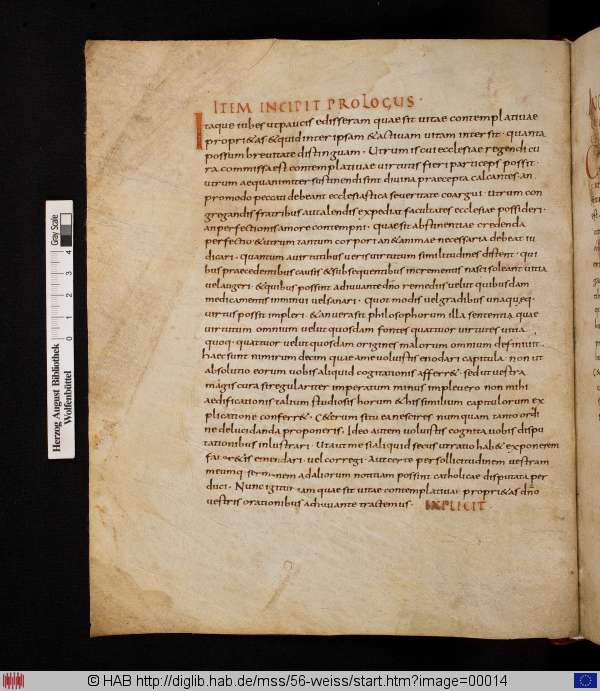 ITEM INCIPIT PROLOGUS·
Itaque iubes ut paucis edisseram quae sit vitae contemplativae
propri&as &quid inter ipsam &activam vitam intersit· quanta
possum brevitate distinguam· Utrum is cui ecclesiae regendi cu
ra commissa est contemplativae virtutis fieri particeps possit·
utrum aequanimiter sustinendi sint divina praecepta calcantes· an
pro modo peccati debeant ecclesiastica severitate coargui· Utrum con
gregandis fratribus aut alendis expediat facultates ecclesiae possideri·
an perfectionis amore contempni· quae sit abstinentiae credenda
perfectio &utrum tantum corpori an &animae necessaria debeat iu
dicari· quantum a virtutibus veris virtutum similitudines distent· qui
bus praecedentibus causis &subsequentibus incrementis nasci soleant vitia
vel augeri· &quibus possint adiuvante dño remediis velut quibusdam
medicamentis inminui vel sanari· Quot modis vel gradibus unaquęq·
virtus possit impleri· &an vera sit philosophorum illa sententia quae
virtutum omnium velut quosdam fontes quattuor virtutes· vitia
quoq· quattuor velut quosdam origines malorum omnium definivit·
haec sunt nimirum decim quae a me voluistis enodari capitula· non ut
absolutio eorum vobis aliquid cogitationis afferr&· sed ut vestra
magis cura si regulariter imperatum minus implevero non mihi
aedificationis ea tum studiosis horum &his similium capitulorum ex
plicatione conferr&· C&erum si tu ea nescires numquam tanto ordi
ne delucidanda proponeris· Ideo autem voluistis cognita vobis dispu
tationibus inlustrari· Ut aut me si aliquid secus ut ratio hab& exponerem
fater& is emendari· vel corregi· Aut certe per sollicitudinem vestram
meumq· sermonem ad aliorum notitiam possint catholicae disputata per
duci· Nunc igitur iam quae sit vitae contemplativae propri&as dño
vestris orationibus adiuvante tractemus· EXPLICIT
Herzog August Bibliothek
Wolfenbüttel
0 1 2 3 4
Gray Scale
© HAB http://diglib.hab.de/mss/56-weiss/start.htm?image=00014